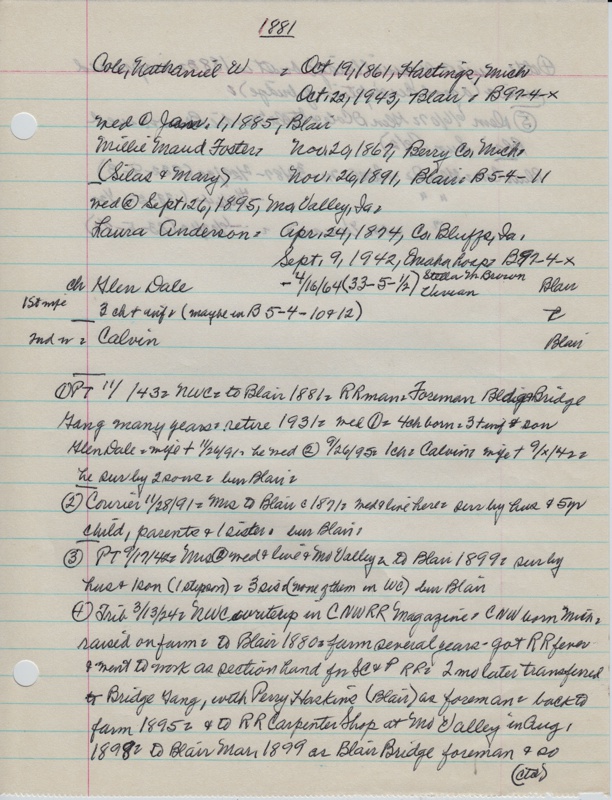 1881
Cole, Nathaniel W = Oct 19, 1861, Hastings, Mich
Oct. 23, 1943, Blair = B97-4-x
med ① Jan. 1, 1885, Blair
Millie Maud Foster = Nov. 20, 1867, Berry Co, Mich.
(Silas & Mary) Nov. 26, 1891, Blair = B5-4-11
med ② Sept. 26, 1895, Mo. Valley, Ia.
Laura Anderson = Apr. 24, 1874, Co. Bluffs, Ia.
Sept. 9, 1942, Omaha hosp = B97-4-x
ch Glen Dale - 4/16/64 (33-5-1/2) Stella M. Brown Blair
1st wife Vivian
3 ch + inf. (maybe in B5-4-10 & 12)
2nd w = Calvin Blair
① PT 11/ /43 = NWC = to Blair 1881 = RR man = Foreman Bldg & Bridge
Gang many years = retire 1931 = med ① = 4 ch born = 3 + inf & son
Glen Dale = wife + 11/26/91 = he med ② 9/26/95 = 1 ch = Calvin = wife + 9/x/42 =
he sur by 2 sons = bur Blair =
② Courier 11/28/91 = Mrs to Blair c 1871 = med & live here = sur by hus & 5 yr
child, parents & 1 sister. bur Blair.
③ PT 9/17/42 = Mrs ② med & live @ Mo Valley = to Blair 1899 = sur by
hus & 1 son (1 stepson) = 3 sis (none of them in WC) bur Blair
④ Trib 3/13/24 = NWC writeup in CNWRR Magazine = CNW born Mich =
raised on farm = to Blair 1880 = farm several years - got RR fever
& went to work as section hand for SC&P RR = 2 mo later transferred
to Bridge Gang, with Perry Haskins (Blair) as foreman = back to
farm 1895 = & to RR Carpenter Shop at Mo Valley in Aug,
1898 = to Blair Mar, 1899 as Blair Bridge foreman & so
(ctd)